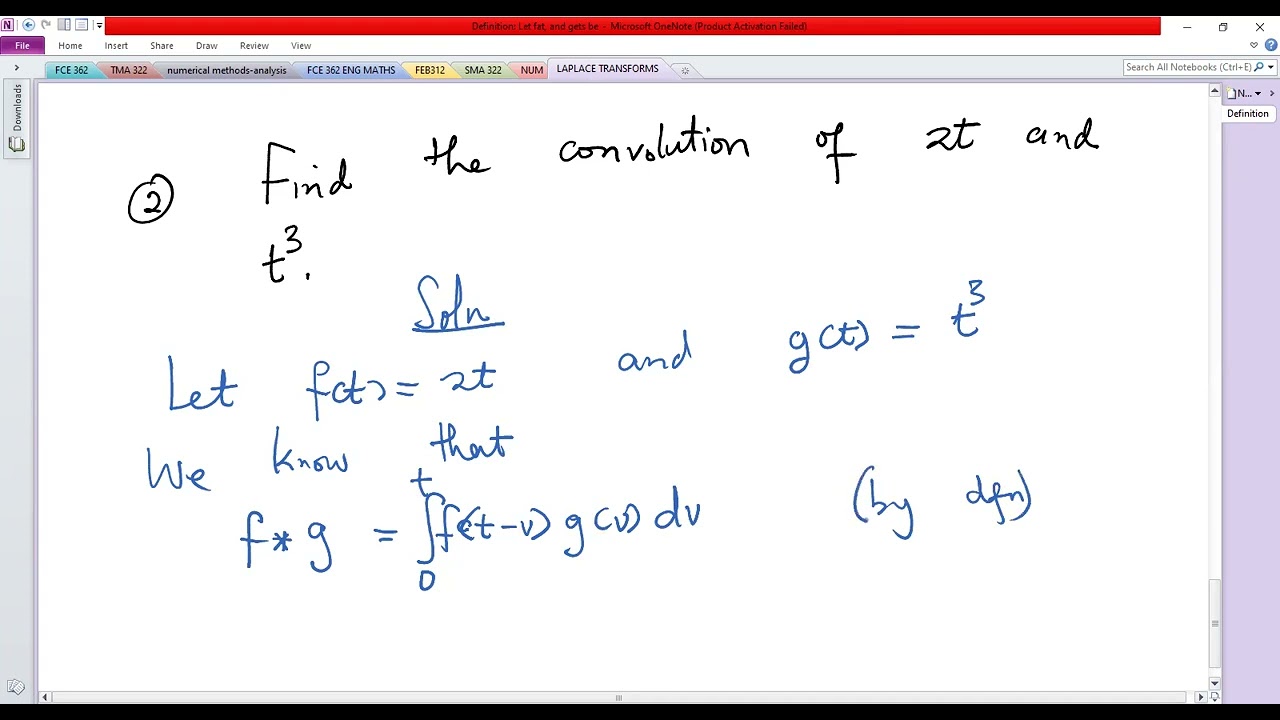 Definition: Let fat, and gets be - Microsoft OneNote (Product Activation Failed)
File Home Insert Share Draw Review View
FCE 362 TMA 322 numerical methods-analysis FCE 362 ENG MATHS FEB312 SMA 322 NUM LAPLACE TRANSFORMS Search All Notebooks (Ctrl+E)
N...
Downloads
Definition
② Find the convolution of 2t and
t³.
Soln
Let f(t) = 2t and g(t) = t³
We know that
f * g = ∫₀ᵗ f(t-v) g(v) dv (by dfn)